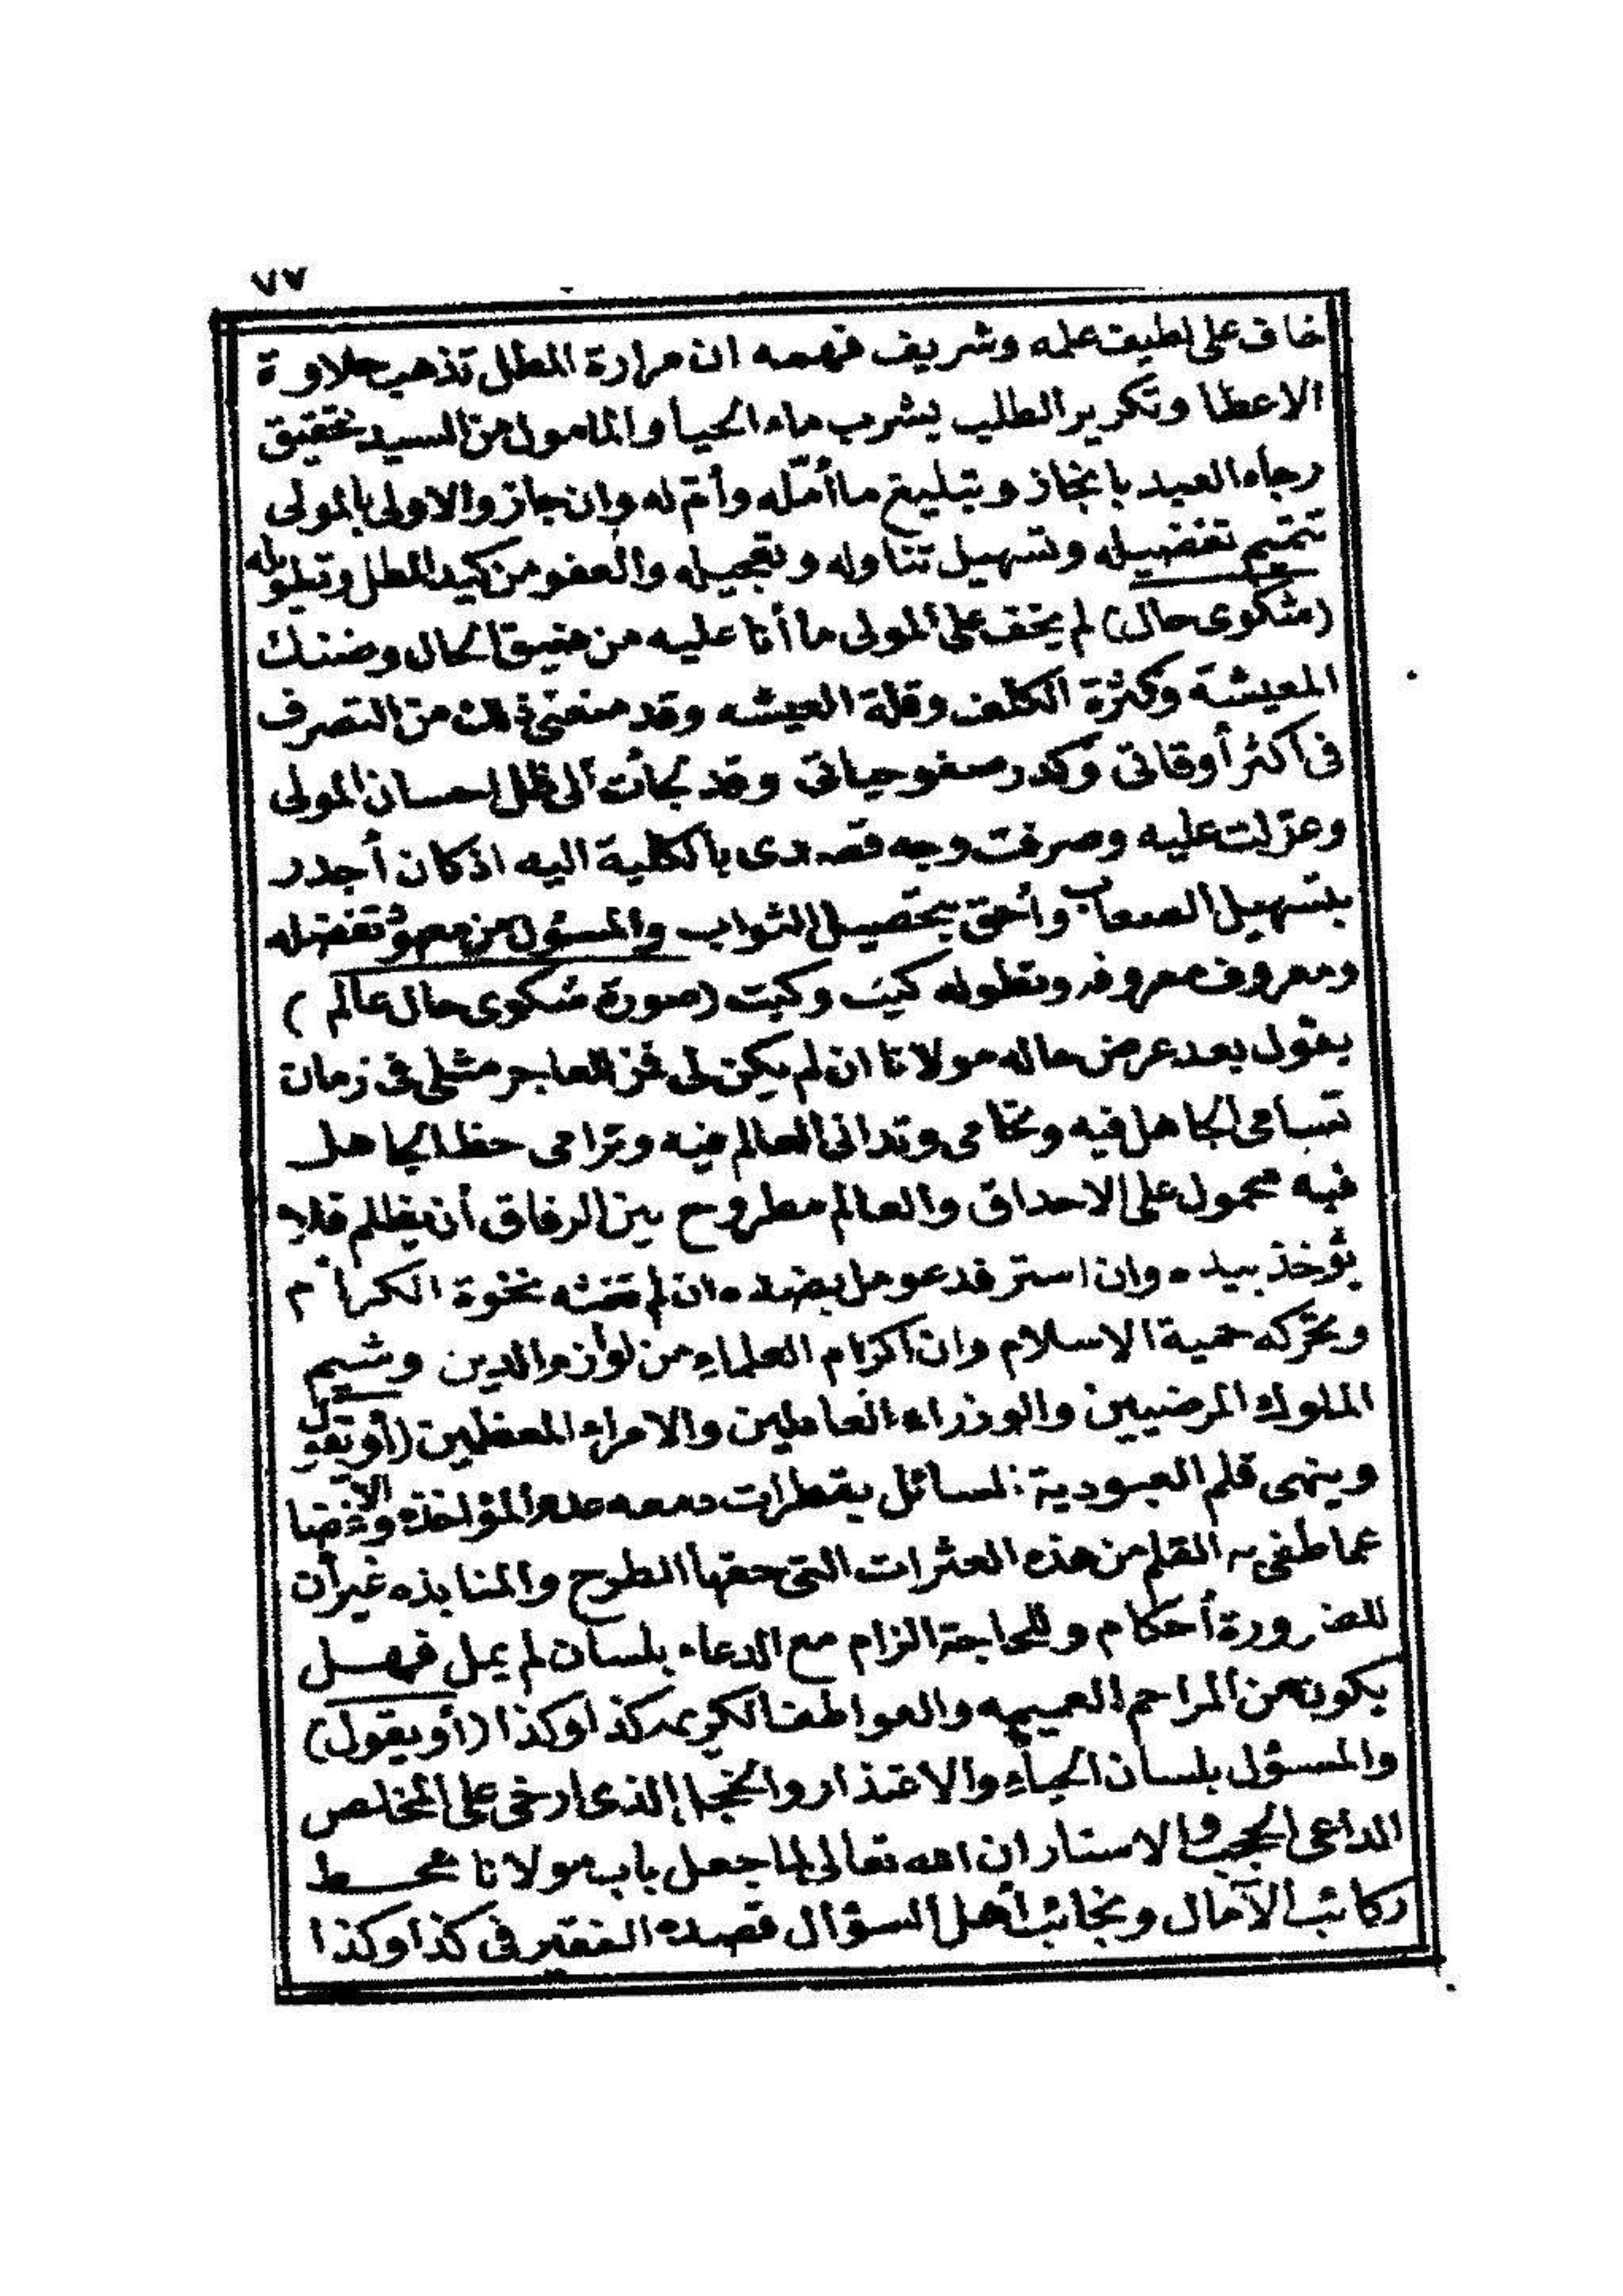 ٧٧
خاف على لطيف علمه وشريف فهمه ان مرارة المطل تذهب حلاوة
الاعطا وتكرير الطلب يشرب ماء الحيا والمامول من السيد تحقيق
رجاء العبد بانجاز وتبليغ ما أمّله وأمّ له وان جاز والاولى بالمولى
تتميم تفضيله وتسهيل تناوله وتعجيله والعفو من كيد المطل وتبلويله
(شكوى حال) لم يخف على المولى ما أنا عليه من ضيق الحال وضنك
المعيشة وكثرة الكلف وقلة العيشه وقد منعنى ذلك من التصرف
فى أكثر أوقاتى وكدر صفو حياتى وقد لجأت الى ظل احسان المولى
وعولت عليه وصرفت وجه قصدى بالكلية اليه اذ كان أجدر
بتسهيل الصعاب وأحق بتحصيل الثواب والمسؤل من معهود تفضله
ومعروف معروفه وتطوله كيت وكيت (صورة شكوى حال عالم)
يقول بعد عرض حاله مولانا ان لم يكن لى فمن لعاجز مثلى فى زمان
تسامى الجاهل فيه وتحامى وتدانى العالم فيه وترامى حظ الجاهل
فيه محمول على الاحداق والعالم مطروح بين الرفاق أن يظلم فلا
يؤخذ بيده وان استرفد عومل بضده ان لم تحثه نخوة الكرام
وتحركه حمية الاسلام وان اكرام العلماء من لوازم الدين وشيم
الملوك المرضيين والوزراء العاملين والامراء المعظمين (أو يقول
وينهى قلم العبودية لسائل بقطرات دمعه عدم المؤاخذه والاغضا
عما طغى به القلم من هذه العثرات التى حقها الطرح والمنابذه غير أن
للضرورة أحكام وللحاجة الزام مع الدعاء بلسان لم يمل فهل
يكون من المراحم العميمه والعواطف الكريمه كذا وكذا (أو يقول)
والمسؤل بلسان الحياء والاعتذار والخجل الذى ارخى على المخلص
الداعى الحجب والاستار ان الله تعالى لما جعل باب مولانا محط
ركائب الآمال ونجائب أهل السؤال قصده الفقير فى كذا وكذا